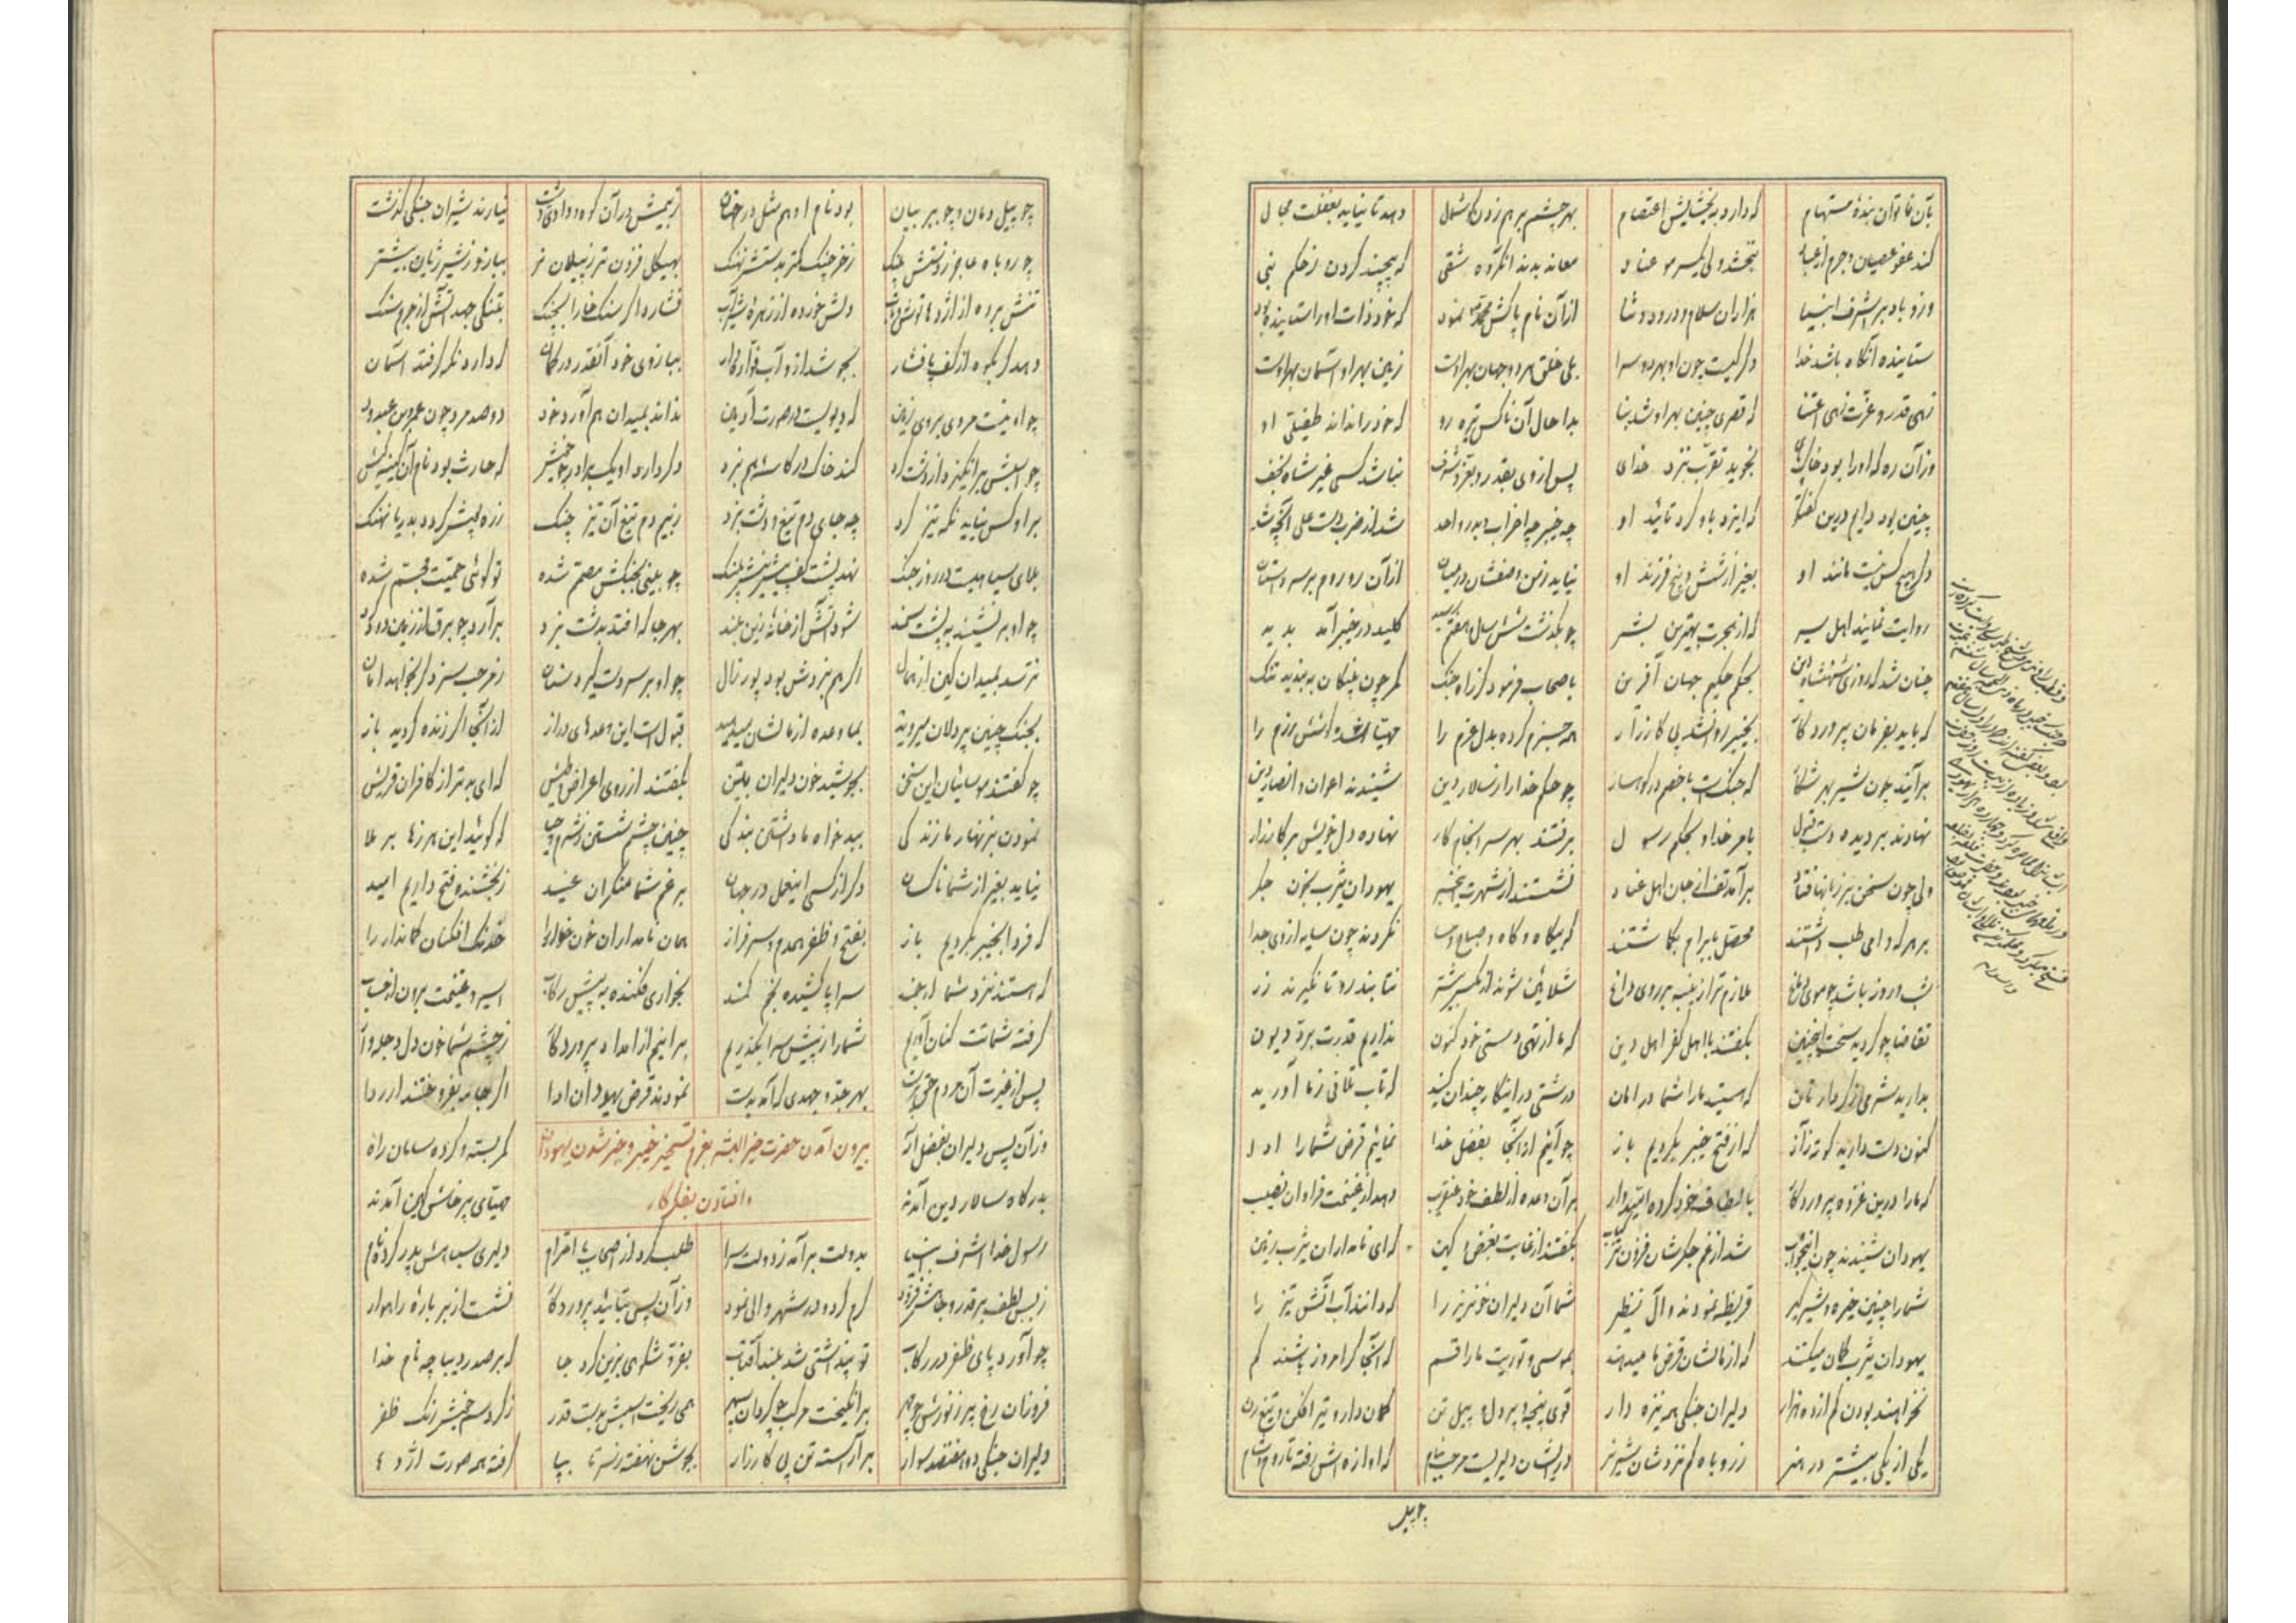 بآن ناتوان بندهٔ مستهام که دارد به بخشایش اعتصام بهر چشم برهم زدن کاشمال دهد تا نیاید بغفلت مجال
کند عفو عصیان و جرم از عباد نبخشد ولی یکسر مو عناد معاند بدند آنگروه شقی که پیچند گردن ز حکم نبی
وزو باد بر اشرف انبیا هزاران سلام و درود و ثنا از آن نام پاکش محمد نمود که خود ذات او را ستاینده بود
ستاینده آنگاه باشد خدا دگر کیست چون او بهر دو سرا بلی خلق هر دو جهان بهر اوست زمین بهر او آسمان بهر اوست
زهی قدر و عزت زهی اعتنا که قصری چنین بهر او شد بنا بدا حال آن ناکس تیره رو که خود را نداند طفیلی او
وز آن ره که او را بود خاک نجوید تقرب بنزد خدای پس از وی بقدر و بعز و شرف نباشد کسی غیر شاه نجف
چنین بود دایم درین گفتگو که ایزد باو کرد تائید او چه خیبر چه احزاب و بدر و احد شد از ضرب دست علی آنچه شد
دگر هیچ کس نیست مانند او بغیر از شش و پنج فرزند او نیاید ز من وصفشان در میان از آن رو روم بر سر داستان
روایت نمایند اهل سیر که از هجرت بهترین بشر چو بگذشت شش سال هفتم رسید کلید در خیبر آمد پدید
چنان شد که روزی شهنشاه دین بحکم حکیم جهان آفرین باصحاب فرمود کز راه جنگ کمر چون پلنگان ببندید تنگ
که باید بفرمان پروردگار بخیبر روان شد پی کارزار همه جزم کرده بدل عزم را مهیا شده سازش رزم را
برآیند چون شیر بهر شکار که جنگست با خصم در کوهسار چو حکم خدا را ز سالار دین شنیدند اعوان و انصار دین
نهادند بر دیده دست قبول بامر خدا و بحکم رسول برفتند بهر سرانجام کار نهاده دل خویش بر کارزار
ولی چون سخن بر زبانها فتاد برآمد تف از جان اهل عناد نشستند از شهرت خیبر یهودان یثرب بخون جگر
بر هر که وامی طلب داشتند محصل بابرام بگماشتند که بیگاه و گاه و صباح و مسا نگردند چون سایه از وی جدا
شب و روز باشد چو موی دماغ ملازم‌تر از پنبه بر روی داغ شلائین شوند از مگس بیشتر نتابند رو تا نگیرند زر
تقاضا چو گردید سخت اینچنین بگفتند با اهل کفر اهل دین که ما از تهی دستی خود کنون نداریم قدرت برد دیون
بدارید شرمی ز کردارتان که هستید ما را شما در امان درشتی در اینکار چندان کنید که تاب تلافی ز ما آورید
کنون دست دارید کوته ز آز که از فتح خیبر بگردیم باز چو آئیم از آنجا بفضل خدا نمائیم قرض شما را ادا
که ما را درین غزوه پروردگار بالطاف خود کرده امیدوار بر آن وعده از لطف خود عنقریب دهد از غنیمت فراوان نصیب
یهودان شنیدند چون این جواب شد از غم جگرشان فزون‌تر کباب بگفتند از غایت بغض و کین که ای نامداران یثرب زمین
شما را چنین خیره و شیرگیر قریظه نمودند و آل نضیر شما آن دلیران خونریز را که دانند آب آتش تیز را
یهودان یثرب گمان میکنند که از مالشان قرض ما میدهند بموسی و توریت ما را قسم که آنجا گر امروز باشند کم
نخواهند بودن کم از ده هزار دلیران جنگی همه نیزه دار قوی پنجه و پر دل و پیل تن کمان دار و تیر افکن و تیغ زن
یکی از یکی بیشتر در هنر ز روباه کم نزدشان شیر نر در ایشان دلیریست مرحب بنام که آوازه‌اش رفته تا روم و شام
چو پیل
چو پیل دمان و چو ببر بیان بود نام او هم مثل در جهان ز بیمش در آن کوه و وادی و دشت نیارند شیران جنگی گذشت
چو روباه عاجز ز دستش پلنگ ز خرچنگ کمتر بدستش نهنگ بهیکل فزون‌تر ز پیلان نر ببازو ز شیر ژیان بیشتر
تنش برده از اژدها توش و تاب دلش خورده از زهره شیر آب فشارد اگر سنگ خارا بچنگ بتنگی جهد آتش از جرم سنگ
دهد گر بکوه از کف پا فشار بجوشد ازو آب فواره‌وار ببازوی خود آنقدر در کمان که دارد نگه گرفتد آسمان
چو او نیست مردی بروی زمین که دیویست در صورت آدمین نداند بمیدان هم آورد خود دو صد مرد چون عمرو بن عبدود
چو اسبش برانگیزد از دشت گرد کند خاک در کاسهٔ هم نبرد دگر دارد او یک برادر بخویش که حارث بود نام آن کینه کیش
بر او کس نیاید نگه تیز کرد چه جای دم تیغ و دشت نبرد ز بیم دم تیغ آن تیز چنگ زره پوش گردد بدریا نهنگ
بلای سیاهیست در روز جنگ نهد پشت کف پیش تیغش پلنگ چو بینی بجنگش مصمم شده تو گوئی حمیت مجسم شده
چو او برنشیند به پشت سمند شود آتش از خانهٔ زین بلند بهر جا که افتد بدشت نبرد برآرد چو برق از زمین دود و گرد
نترسد بمیدان کین از همال اگر هم نبردش بود پور زال چو او بر سر دست گیرد سنان ز مرحب سزد گر بخواهد امان
بجنگ چنین پر دلان میروید بما وعده از مالشان میدهید قبول است این وعدهای دراز از آنجا اگر زنده گردید باز
چو گفتند موسائیان این سخن بجوشید خون دلیران بتن بگفتند از روی اعراض و طیش که ای بدتر از کافران قریش
نمودن بزنهار ما زندگی بدخواه ما داشتن بندگی چنین چشم شستن ز شرم و حیا که گوئید این هرزها بر ملا
نیاید بغیر از شما ناکسان دگر از کسی اینعمل در جهان برغم شما منکران عنید ز بخشنده فتح داریم امید
که فردا بخیبر بگردیم باز بفتح و ظفر همدم و سرفراز همان نامداران خونخوار را خدنگ افکنان کماندار را
که هستند نزد شما ارجمند سراپا کشیده بخم کمند بخواری فکنده به پیش رکاب اسیر و غنیمت برون از حساب
گرفته شماتت کنان آوریم شما را ز پیش سرا بگذریم برانیم از امداد پروردگار ز چشم شما خون دل دجله‌وار
پس از غیرت آن مردم حق پرست بهر جد و جهدی که آمد بدست نمودند قرض یهودان ادا اگر جامه بفروختند ار ردا
بیرون آمدن حضرت خیر البشر بعزم تسخیر خیبر و خبر شدن یهودان
و افتادن بفکر کار
وزآن پس دلیران بفضل اله کمر بسته و کرده سامان راه
بدرگاه سالار دین آمدند مهیای پرخاش و کین آمدند
رسول خدا اشرف انبیا بدولت برآمد ز دولت سرا طلب کرد از اصحاب با احترام دلیری سباعش پدر کرده نام
ز بس لطف بر قدر و جاهش فزود کرم کرد و در شهر والی نمود وزآن پس بتائید پروردگار نشست از بر بارهٔ راهوار
چو آورد پای ظفر در رکاب تو پنداشتی شد بلند آفتاب بعز و شکوهی بزین کرد جا که بر صدر دیباچه نام خدا
فروزان رخ پر ز نورش چو مهر برانگیخت مرکب چو گردان سپهر همی ریخت اسبش بدست قدر ز گرد سم خویش رنگ ظفر
دلیران جنگی دو هفتصد سوار برآراسته تن پی کارزار بجوشن نهفته ز سر تا بپا گرفته همه صورت اژدها